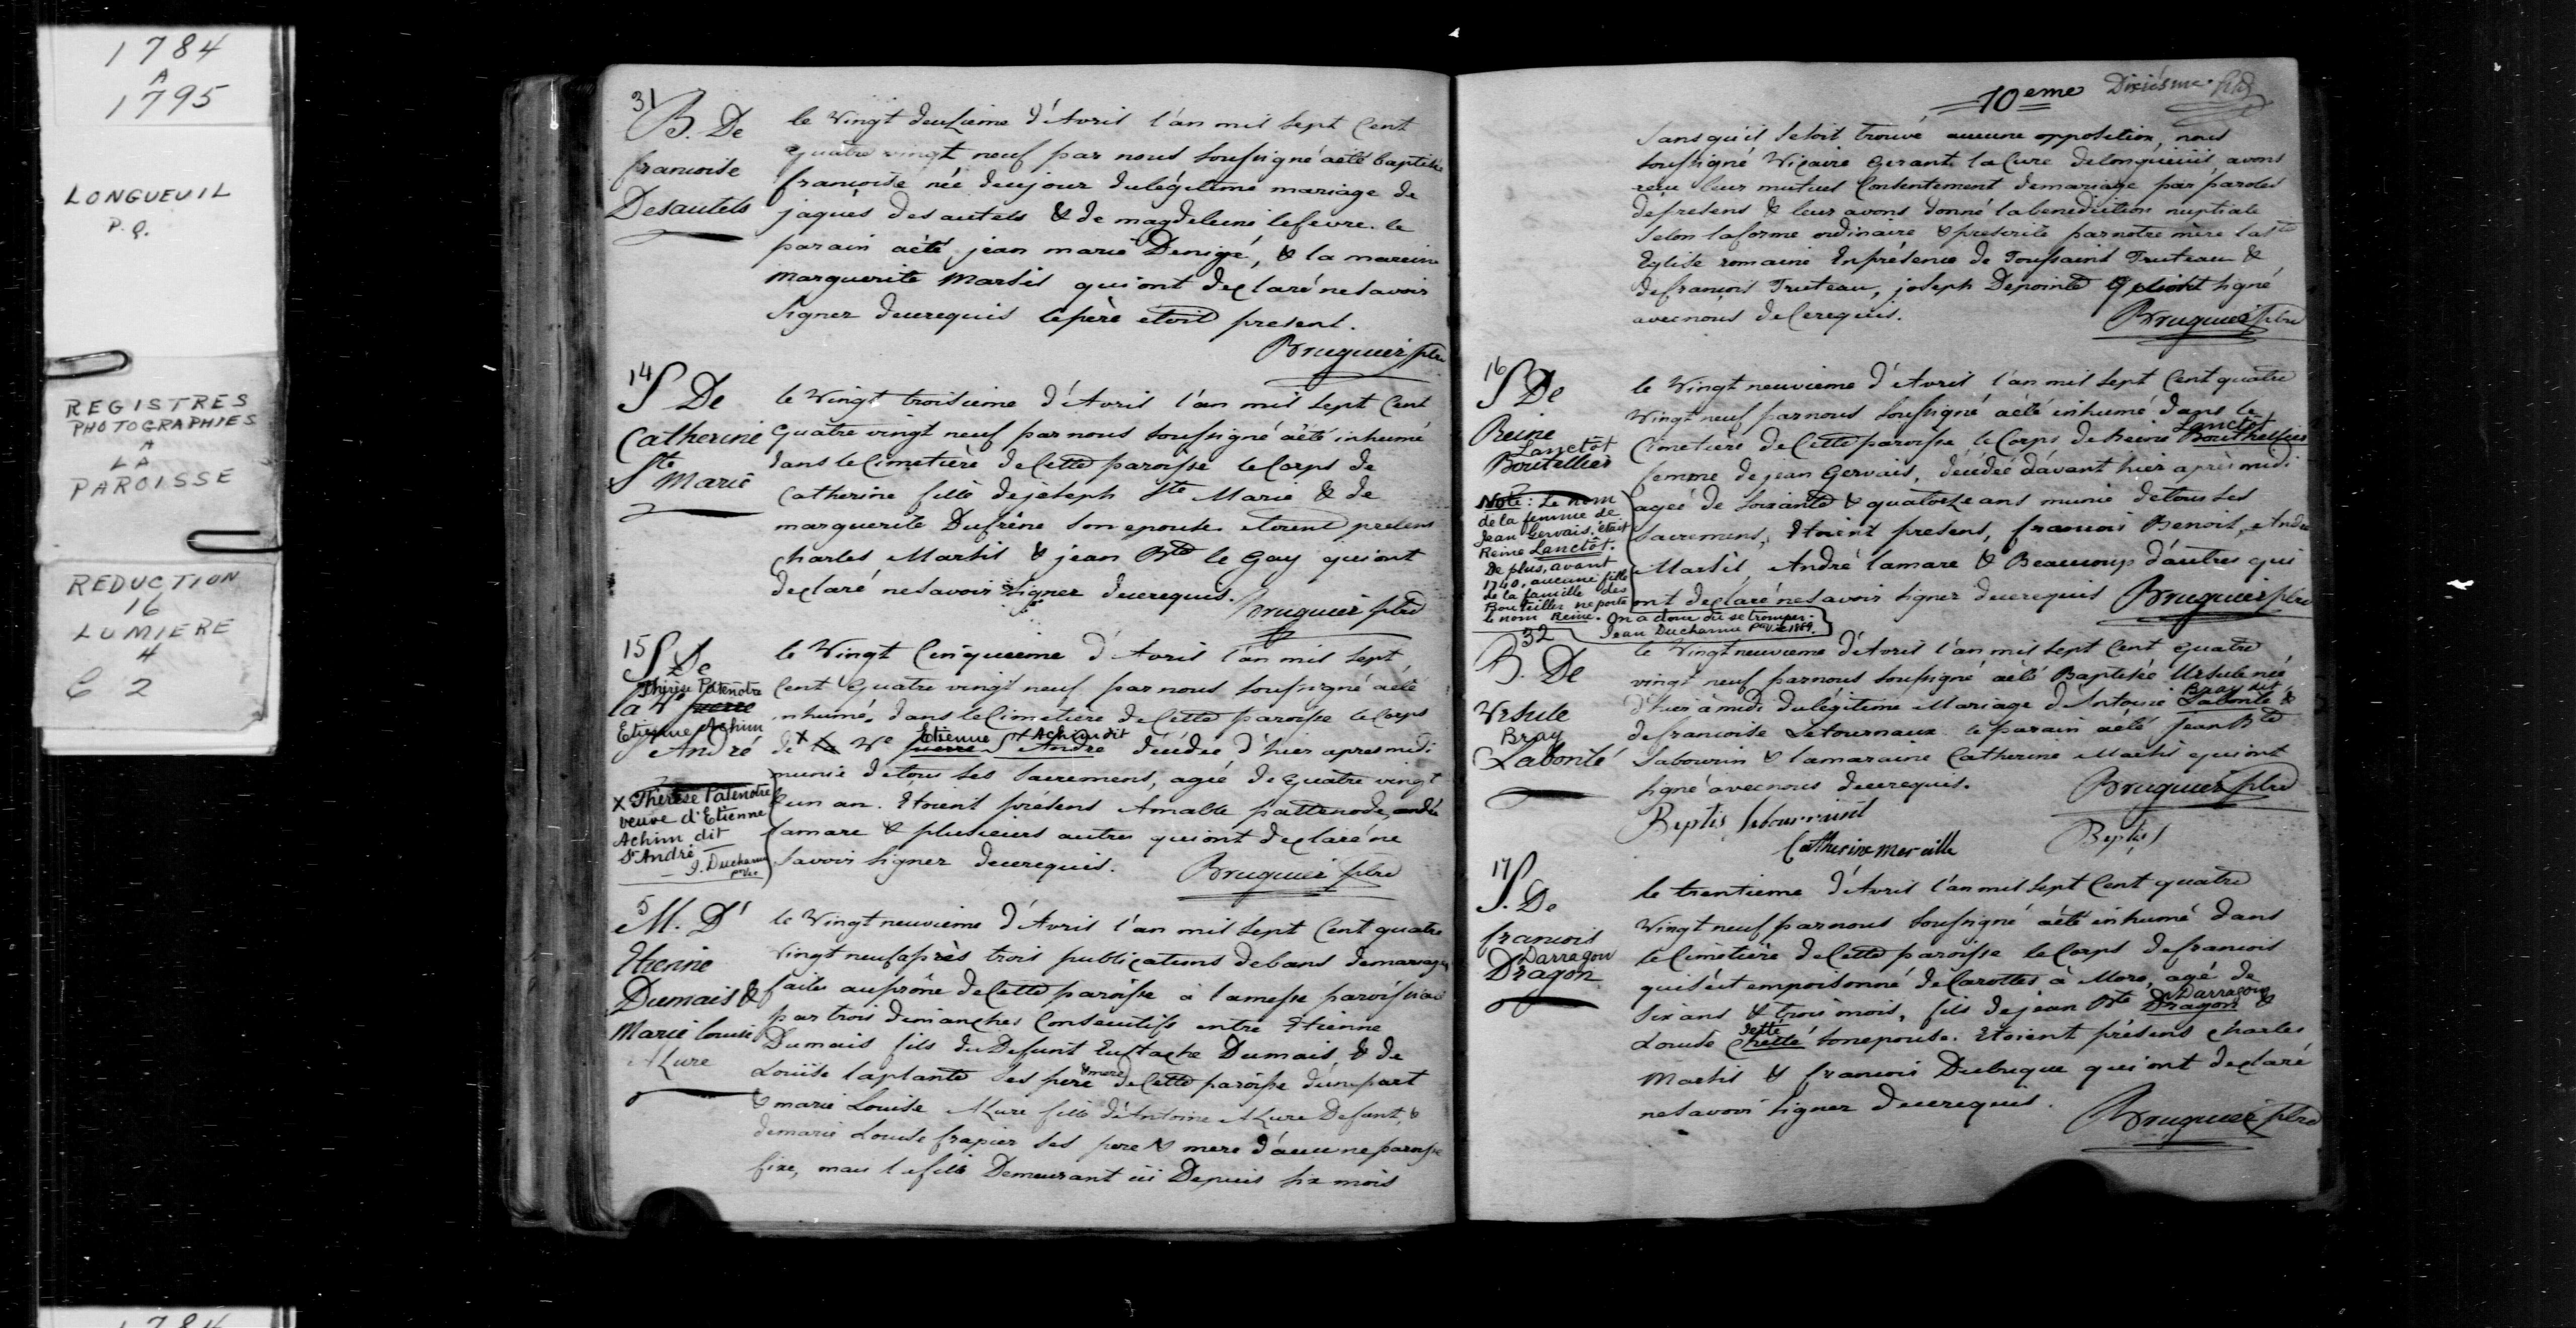 1784
A
1795
LONGUEUIL
P.Q.
REGISTRES
PHOTOGRAPHIES
A
LA
PAROISSE
REDUCTION
16
LUMIERE
4
C 2
1784
31
B. De
francoise
Desautels
le vingt deuxieme d'Avril l'an mil sept Cent
quatre vingt neuf par nous soussigné aété baptisée
francoise née dece jour du légitime mariage de
jaques desautels & de magdeleine lefevre. le
parain aété jean marie Denigé, & la mareine
marguerite Marsil qui ont declaré ne savoir
signer de ce requis le père etoit present.
Bruguier ptre
14
S De
Catherine
Ste Marie
le vingt troisieme d'Avril l'an mil sept Cent
quatre vingt neuf par nous soussigné aété inhumé
dans le Cimetière de Cette paroisse le Corps de
Catherine fille de joseph Ste Marie & de
marguerite Dufrêne son epouse. etoient presens
Charles Marsil & jean Bte le Gay qui ont
declaré ne savoir signer de ce requis.
Bruguier ptre
15
S De
Thérèse Patenotre
la Ve pierre
Etienne Achim
St André
x Thérèse Patenotre
veuve d'Etienne
Achim dit
St André
J. Ducharme
ptre Vic
le vingt Cinquieme d'Avril l'an mil sept
Cent quatre vingt neuf par nous soussigné aété
inhumé, dans le Cimetiere de Cette paroisse le Corps
Etienne Achim dit
de x la Ve pierre St André décédée d'hier apres midi
munie de tous ses sacremens, agée de quatre vingt
& un an. Etoient présens Amable pattenode, andré
lamare & plusieurs autres qui ont declaré ne
savoir signer de ce requis.
Bruguier ptre
5
M. D'
Etienne
Dumais &
Marie louise
Alure
le vingt neuvieme d'Avril l'an mil sept Cent quatre
vingt neuf après trois publications de bans de mariage
faites au prône de Cette paroisse à la messe paroissiale
par trois dimanches Consecutifs entre Etienne
Dumais fils du Defunt Eustache Dumais & de
Louise laplante ses pere & mere de Cette paroisse d'une part
& marie Louise Alure fille d'Antoine Alure Defunt, &
de marie Louise frapier ses pere & mere d'aucune paroisse
fixe, mais la fille Demeurant ici Depuis six mois
10eme Dixiésme
sans qu'il se soit trouvé aucune opposition, nous
soussigné Vicaire Gerant la Cure de longueüil, avons
reçu leur mutuel Consentement de mariage par paroles
de présens & leur avons donné la benediction nuptiale
selon la forme ordinaire & prescrite par notre mère la Ste
Eglise romaine En présence de Toussaint Truteau &
de françois Truteau, joseph Depointe qui ont signé
avec nous de Ce requis.
Bruguier ptre
16
S De
Reine
Lanctôt
Boutellier
Note: Le nom
de la femme de
Jean Gervais était
Reine Lanctôt.
De plus, avant
1740, aucune fille
de la famille des
Bouteiller ne porte
le nom Reine. On a donc dû se tromper.
Jean Ducharme ptre Vic 1889.
le vingt neuvieme d'Avril l'an mil sept Cent quatre
vingt neuf par nous soussigné aété inhumé dans le
Lanctôt
Cimetière de Cette paroisse le Corps de Reine Bouthellier
femme de jean Gervais, décédée d'avant hier après midi
agée de soixante & quatorze ans munie de tous ses
sacremens, Etoient presens, francois Benoit, André
Marsil, André lamare & Beaucoup d'autres qui
ont declaré ne savoir signer de ce requis
Bruguier ptre
32
B. De
Ursule
Bray
Labonté
le vingt neuvieme d'Avril l'an mil sept Cent quatre
vingt neuf par nous soussigné aété Baptisée Ursule née
Bray dit
d'hier à midi du légitime Mariage d'Antoine Labonté &
de francoise Letournaux le parain aété jean Bte
Sabourin & la maraine Catherine Marsil qui ont
signé avec nous de ce requis.
Bruguier ptre
Catherine merville
17
S. De
francois
Darragon
Dragon
le trentieme d'Avril l'an mil sept Cent quatre
vingt neuf par nous soussigné aété inhumé dans
le Cimetière de Cette paroisse le Corps de francois
qui s'est empoisonné de Carottes à More, agé de
Darragon
six ans & trois mois, fils de jean Bte Dragon &
Jetté
Louise Chetté son epouse. Etoient présens Charles
Marsil & francois Dubuque qui ont declaré
ne savoir signer de ce requis.
Bruguier ptre